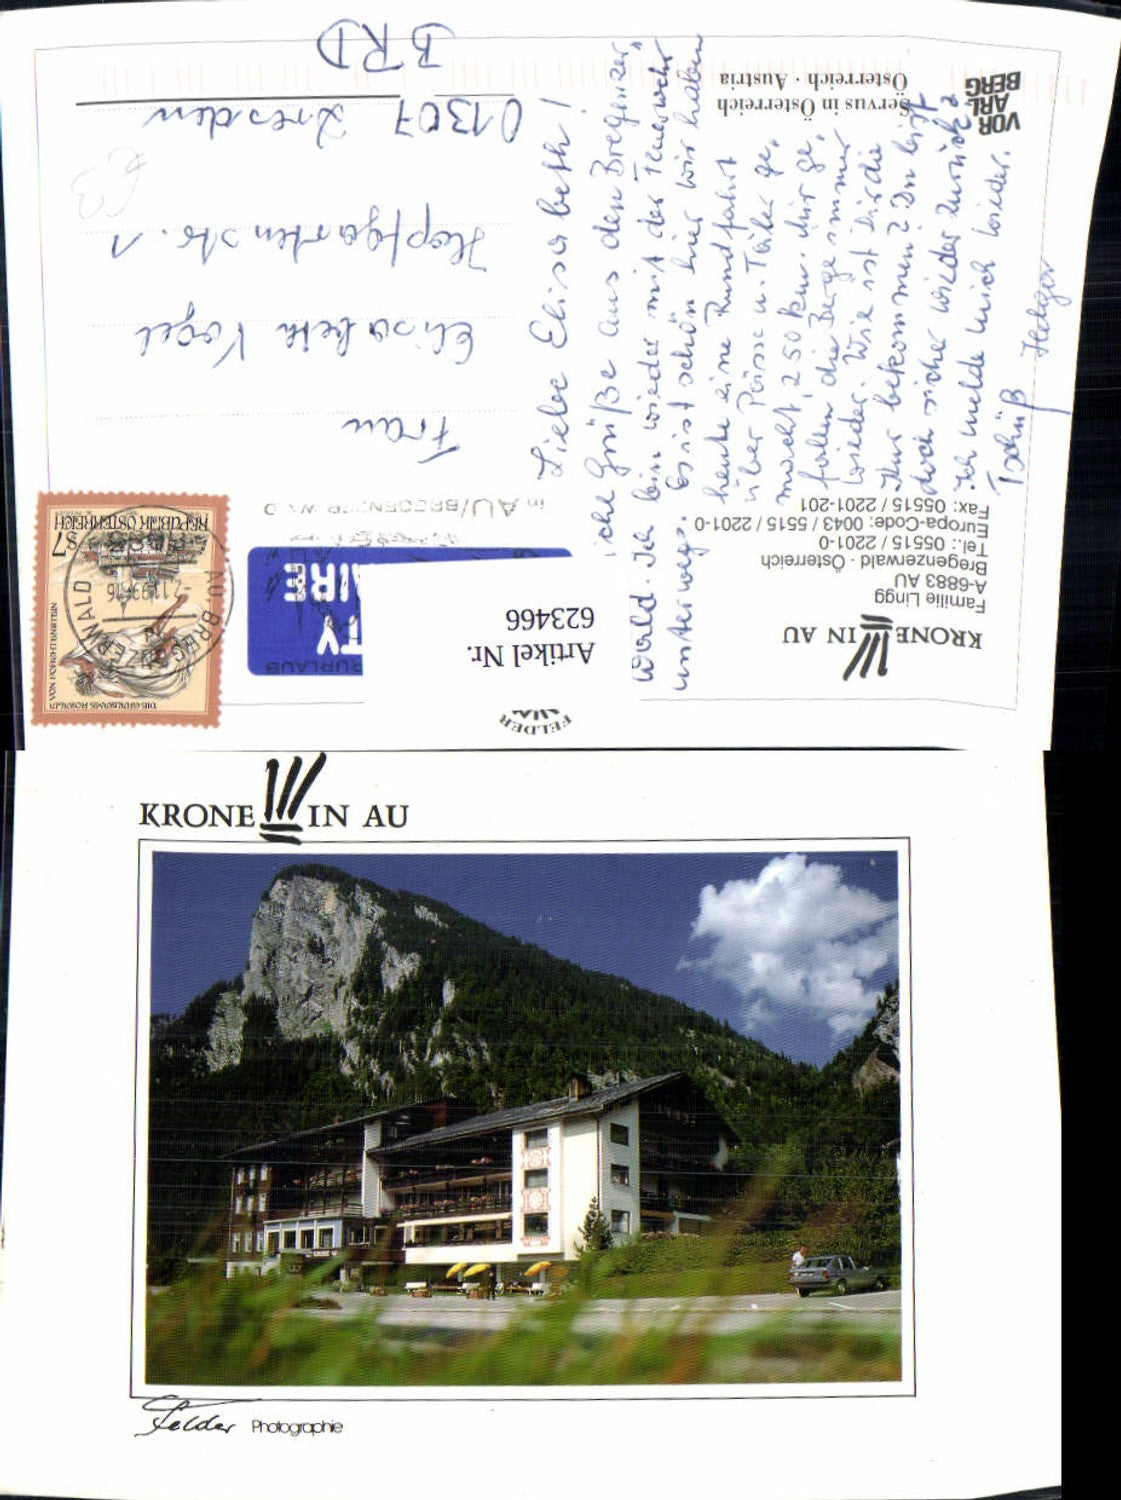 VOR
ARL
BERG
Servus in Österreich
Österreich · Austria
BRD
01307 Dresden
Hopfgartenstr. 1
Elisabeth Vogel
Frau
Liebe Elisabeth!
Grüße aus dem Bregenzer
Wald. Ich bin wieder mit der Feuerwehr
unterwegs. Es ist schön hier. Wir haben
heute eine Rundfahrt
über Pässe u. Täler ge-
macht, 250 km. Mir ge-
fallen die Berge immer
wieder. Wie ist Dir die
Kur bekommen? Du bist
doch sicher wieder zurück?
Ich melde mich wieder.
Tschüß Holger
KRONE IN AU
Familie Lingg
A-6883 AU
Bregenzerwald · Österreich
Tel.: 05515 / 2201-0
Europa-Code: 0043 / 5515 / 2201-0
Fax: 05515 / 2201-201
Artikel Nr.
623466
FELDER
REPUBLIK ÖSTERREICH
S7
in AU/BREGENZERWALD
KRONE IN AU
Felder Photographie